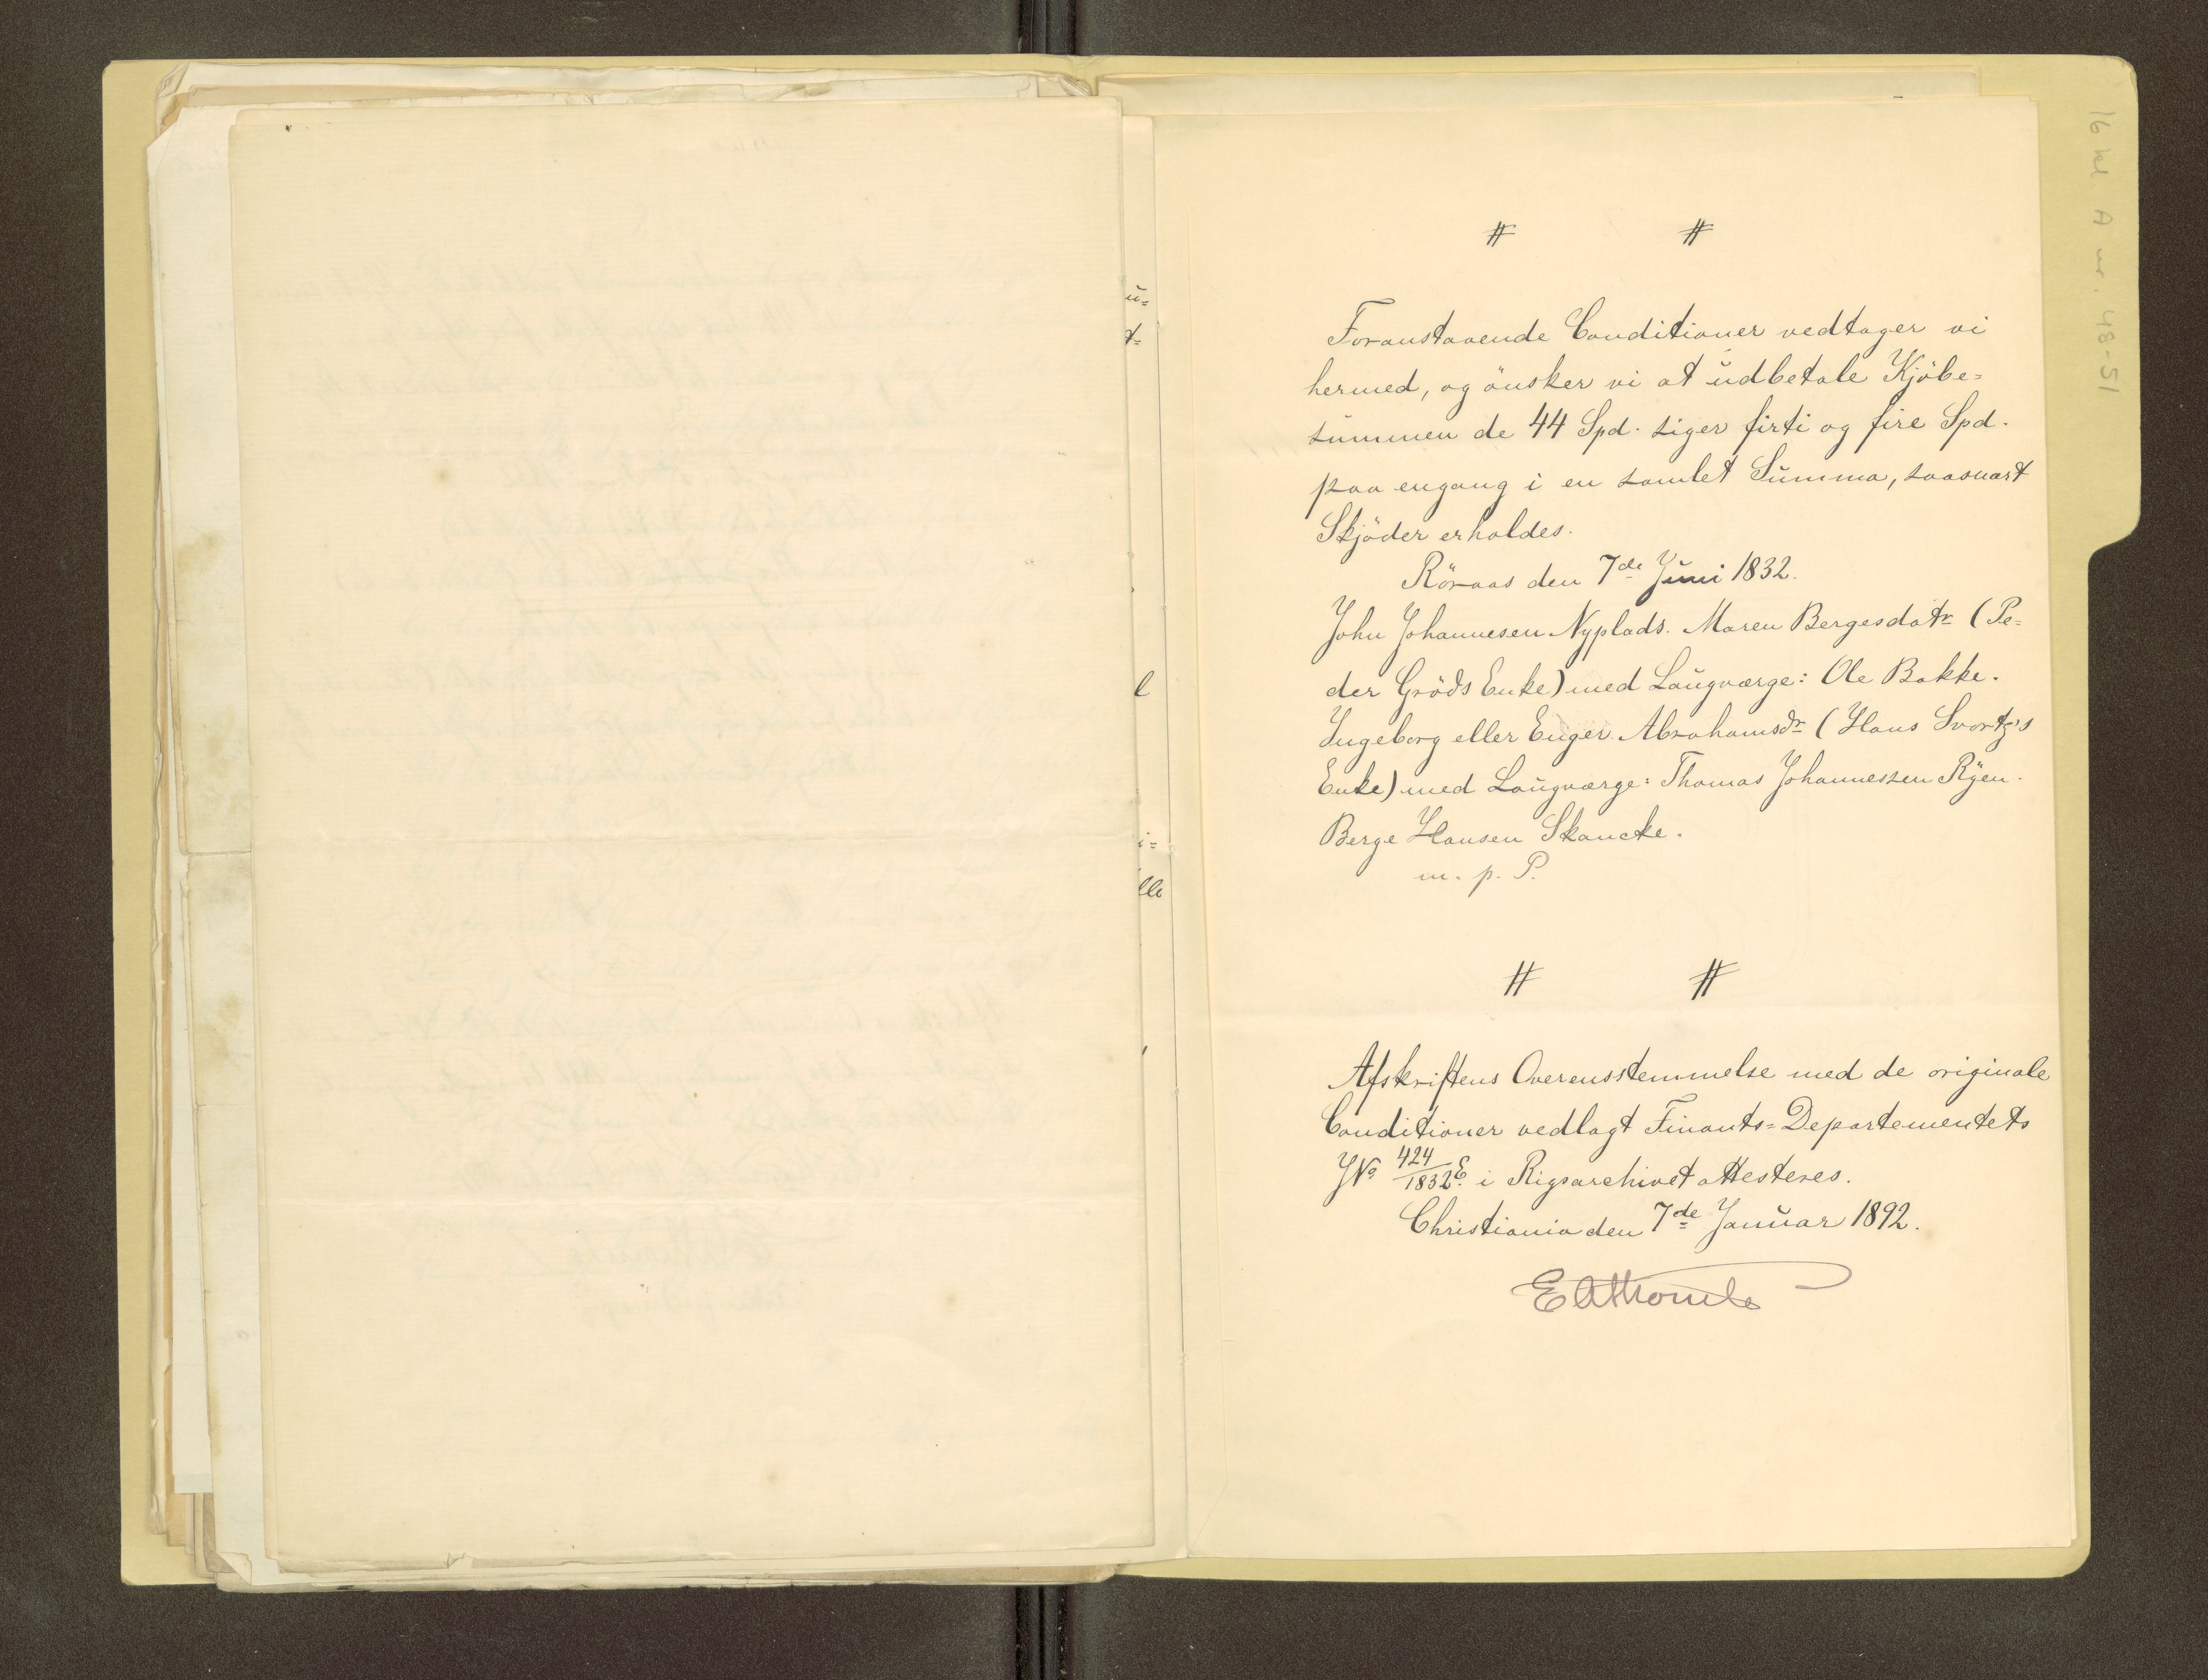 # #
Foranstaaende Conditioner vedtager vi
hermed, og önsker vi at udbetale Kjöbe=
summen de 44 Spd. siger firti og fire Spd.
paa engang i en samlet Summa, saasnart
Skjöder erholdes.
Röraas den 7de Juni 1832.
John Johannesen Nyplads. Maren Bergesdatr (Pe=
der Gröds Enke) med Laugværge: Ole Bakke.
Ingeborg eller Enger Abrahamsdr (Hans Svartz's
Enke) med Laugværge: Thomas Johannessen Ryen.
Berge Hansen Skancke.
m. p. P.
# #
Afskriftens Overensstemmelse med de originale
Conditioner vedlagt Finants=Departementets
JNo 424/1832 E. i Rigsarchivet attesteres.
Christiania den 7de Januar 1892.
EAThomle
16 kl A nr. 48-51
u=
t=
l
i=
lle